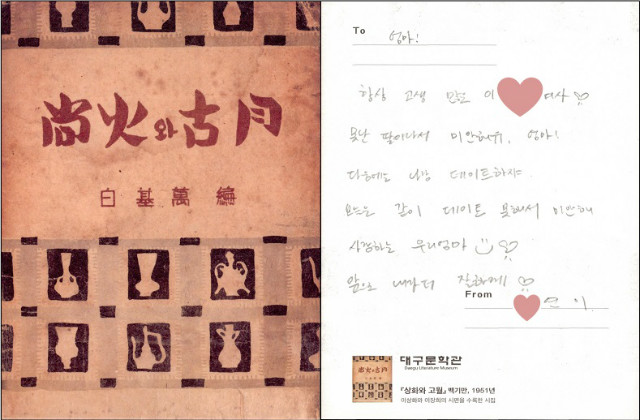 尙火와古月
白基萬 編
To 엄마!
항상 고생 많은 이 여사
못난 딸이라서 미안해, 엄마!
다음에는 나랑 데이트하자
요즘은 같이 데이트 못해서 미안해
사랑하는 우리엄마
앞으로 내가 더 잘할게
From
尙火와古月
대구문학관
Daegu Literature Museum
『상화와 고월』 백기만, 1951년
이상화와 이장희의 시편을 수록한 서집